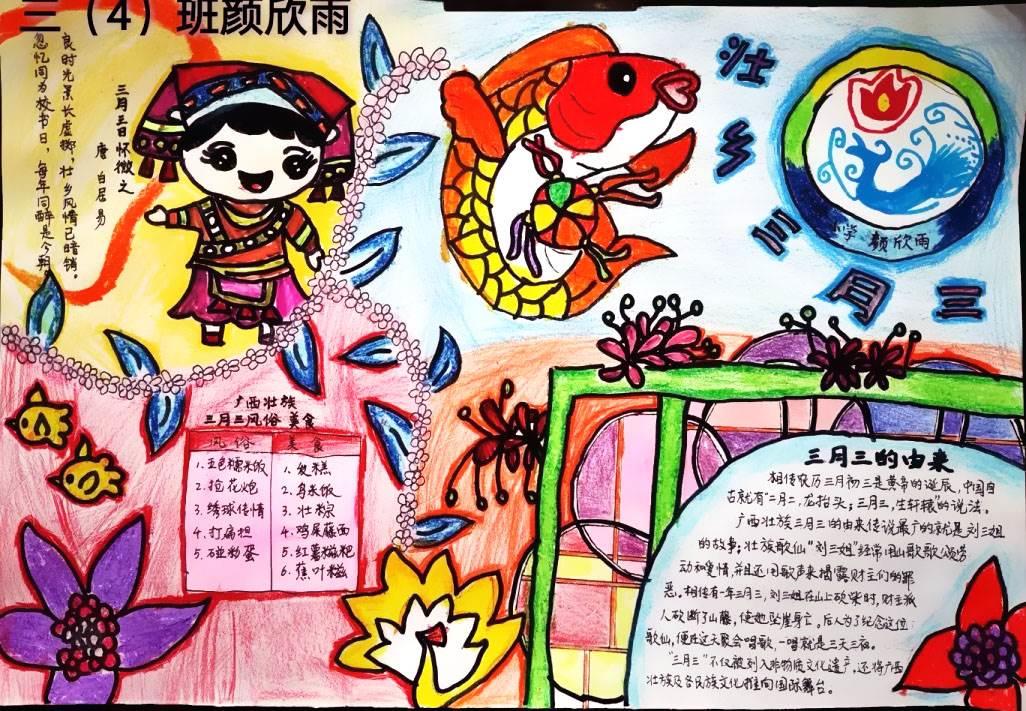 三（4）班颜欣雨
三月三日怀微之
唐 白居易
良时光景长虚掷，壮乡风情已暗销。
忽忆同为校书日，每年同醉是今朝。
壮
乡
三
月
三
学 颜欣雨
广西壮族
三月三风俗美食
风俗 美食
1.五色糯米饭 1.发糕
2.抢花炮 2.乌米饭
3.绣球传情 3.壮粽
4.打扁担 4.鸡屎藤面
5.碰彩蛋 5.红薯糍粑
6.蕉叶糍
三月三的由来
相传农历三月初三是黄帝的诞辰，中国自
古就有“二月二，龙抬头；三月三，生轩辕”的说法。
广西壮族三月三的由来传说最广的就是刘三姐
的故事；壮族歌仙“刘三姐”经常用山歌歌颂劳
动和爱情，并且还用歌声来揭露财主们的罪
恶。相传有一年三月三，刘三姐在山上砍柴时，财主派
人砍断了山藤，使她坠崖身亡。后人为了纪念这位
歌仙，便在这天聚会唱歌，一唱就是三天三夜。
“三月三”不仅被列入非物质文化遗产，还将广西
壮族及各民族文化推向国际舞台。